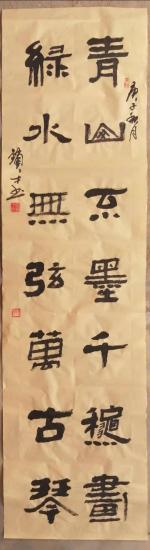 庚子秋月
青山不墨千穐畫
綠水無弦萬古琴